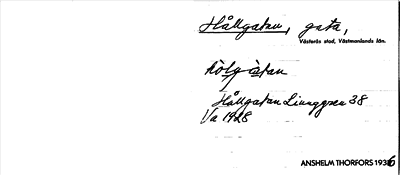 Hållgatan, gata,
Västerås stad, Västmanlands län.
Hållgatan Linnggren 38
Va 1928
ANSHELM THORFORS 1936